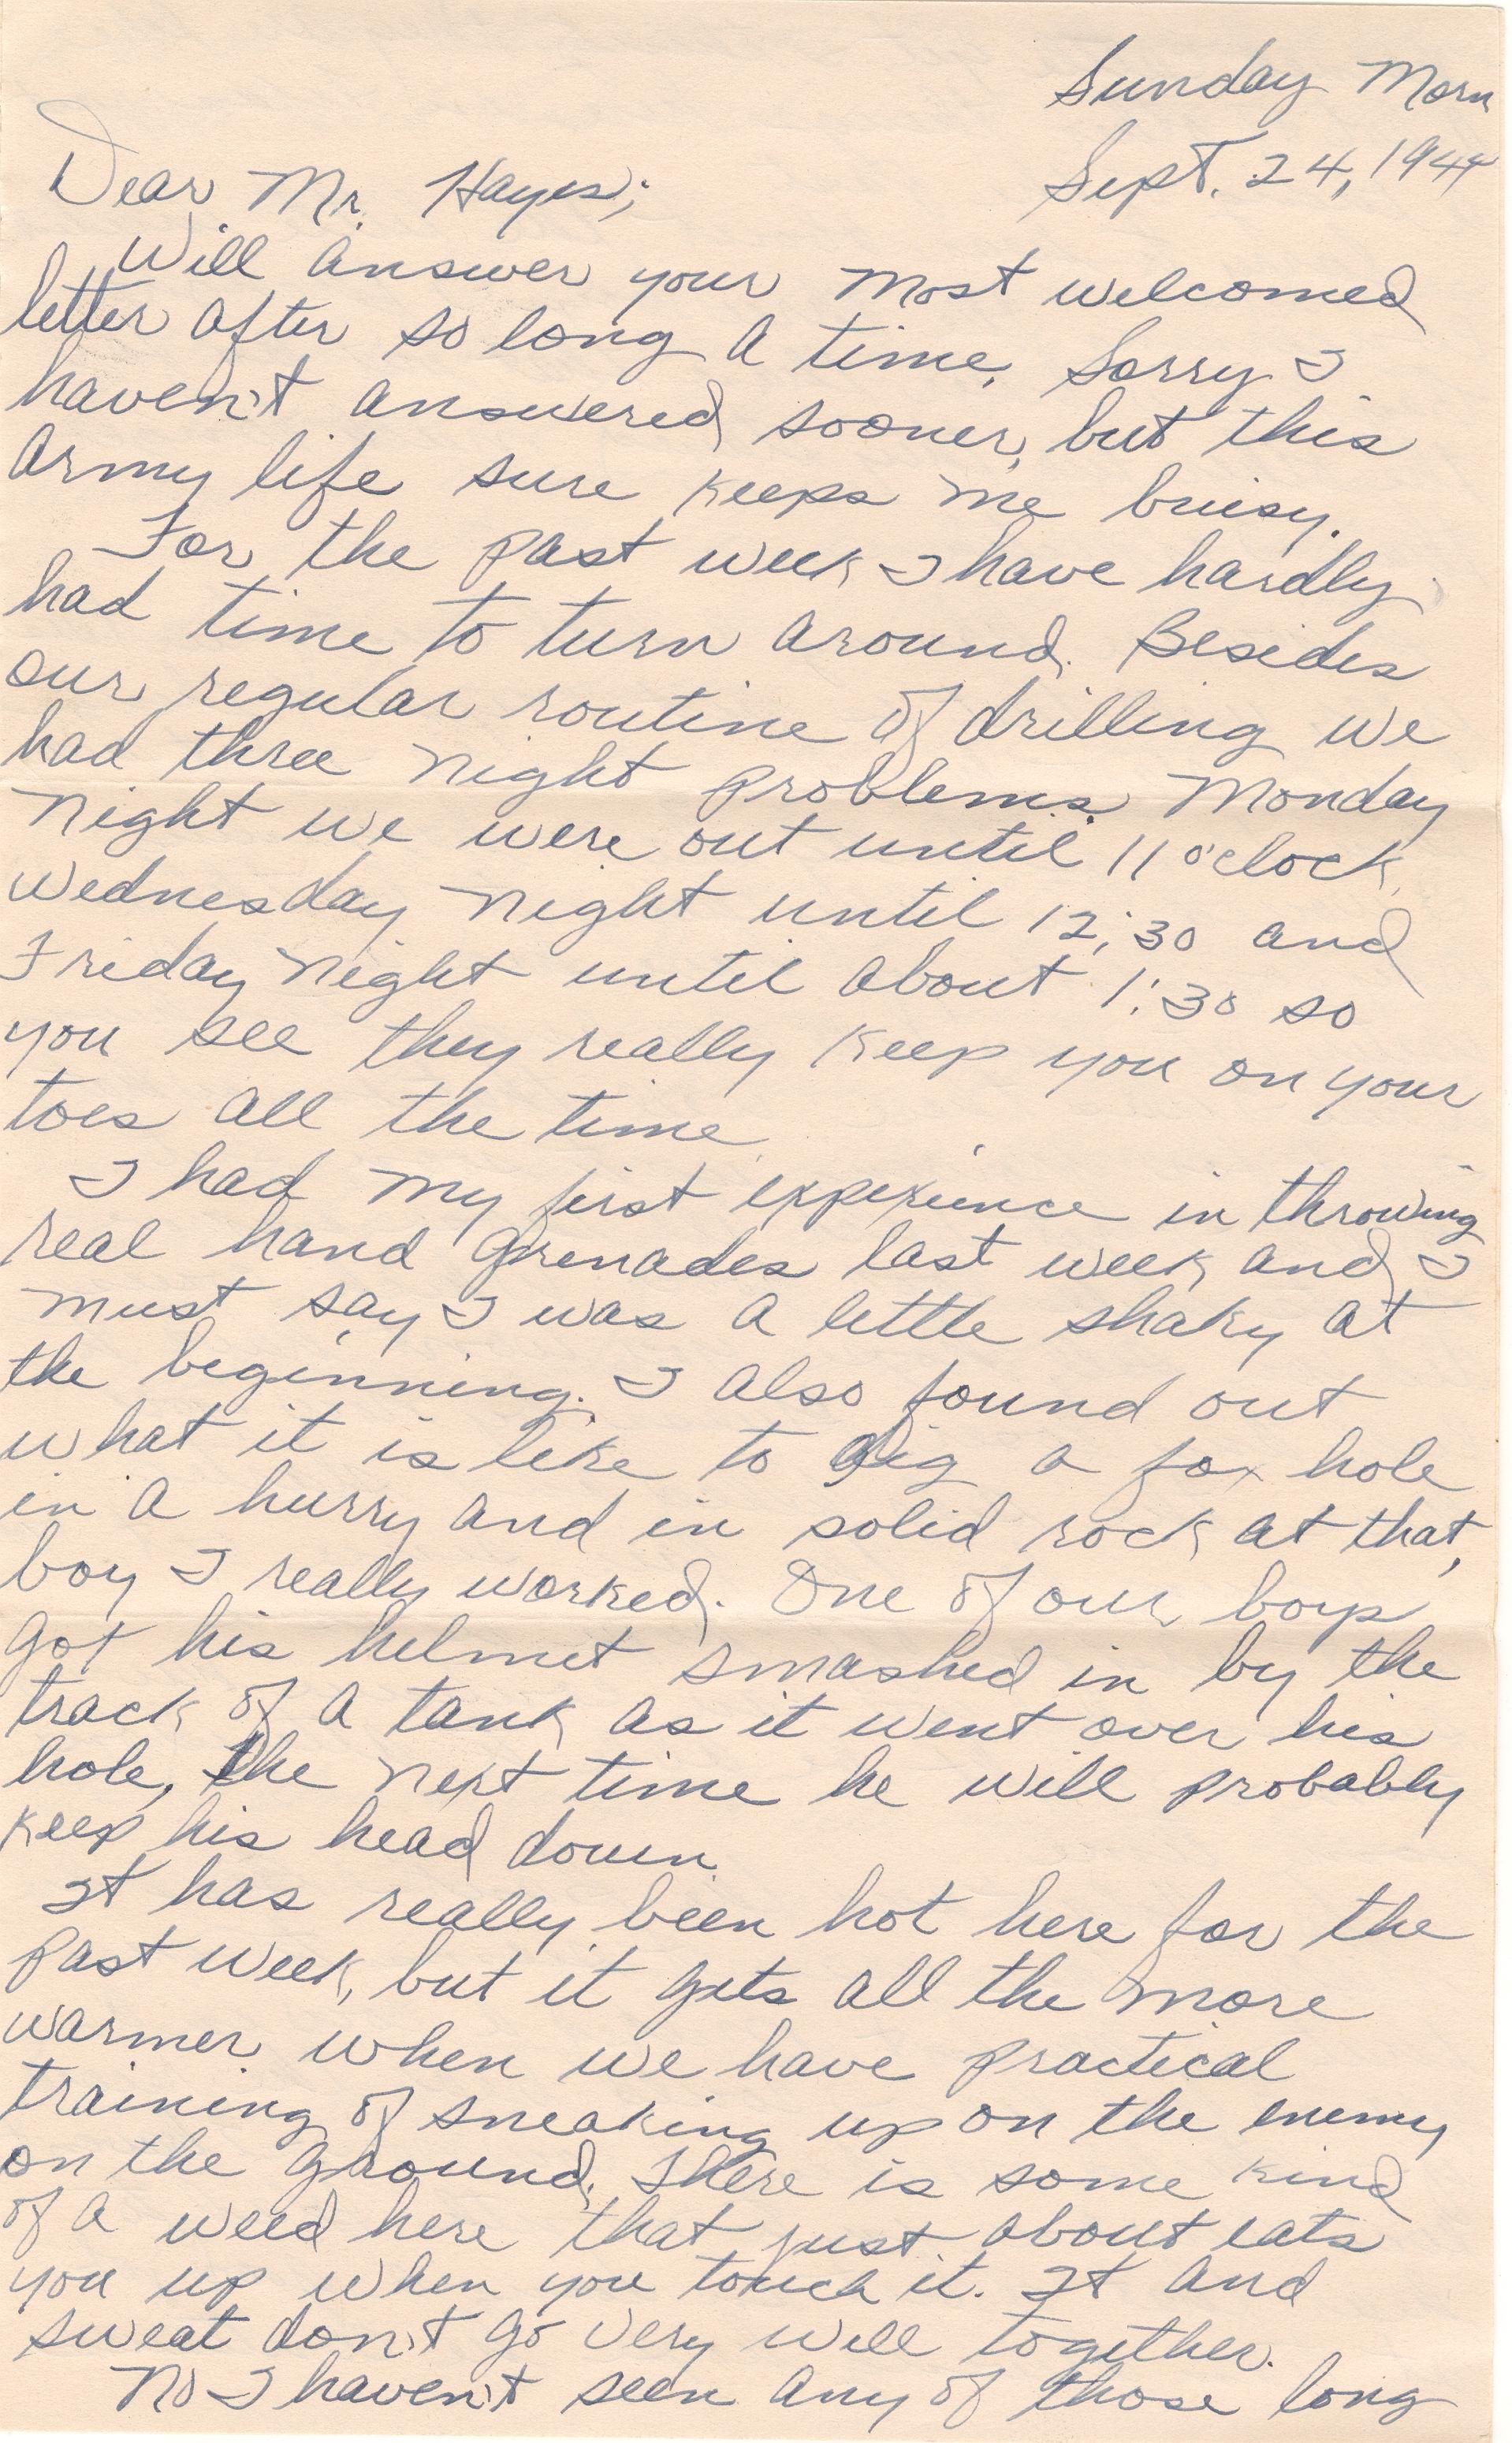 Sunday Morn
Sept. 24, 1944
Dear Mr. Hayes;
Will answer your most welcomed
letter after so long a time. Sorry I
haven't answered sooner, but this
army life sure keeps me buisy.
For the past week I have hardly
had time to turn around. Besides
our regular routine of drilling we
had three night problems. Monday
night we were out until 11 o'clock,
Wednesday night until 12:30 and
Friday night until about 1:30 so
you see they really keep you on your
toes all the time.
I had my first experience in throwing
real hand grenades last week and I
must say I was a little shaky at
the beginning. I also found out
what it is like to dig a fox hole
in a hurry and in solid rock at that,
boy I really worked. One of our boys
got his helmet smashed in by the
track of a tank as it went over his
hole, the next time he will probably
keep his head down.
It has really been hot here for the
past week, but it gets all the more
warmer when we have practical
training of sneaking up on the enemy
on the ground. There is some kind
of a weed here that just about eats
you up when you touch it. It and
sweat don't go very well together.
No I haven't seen any of those long